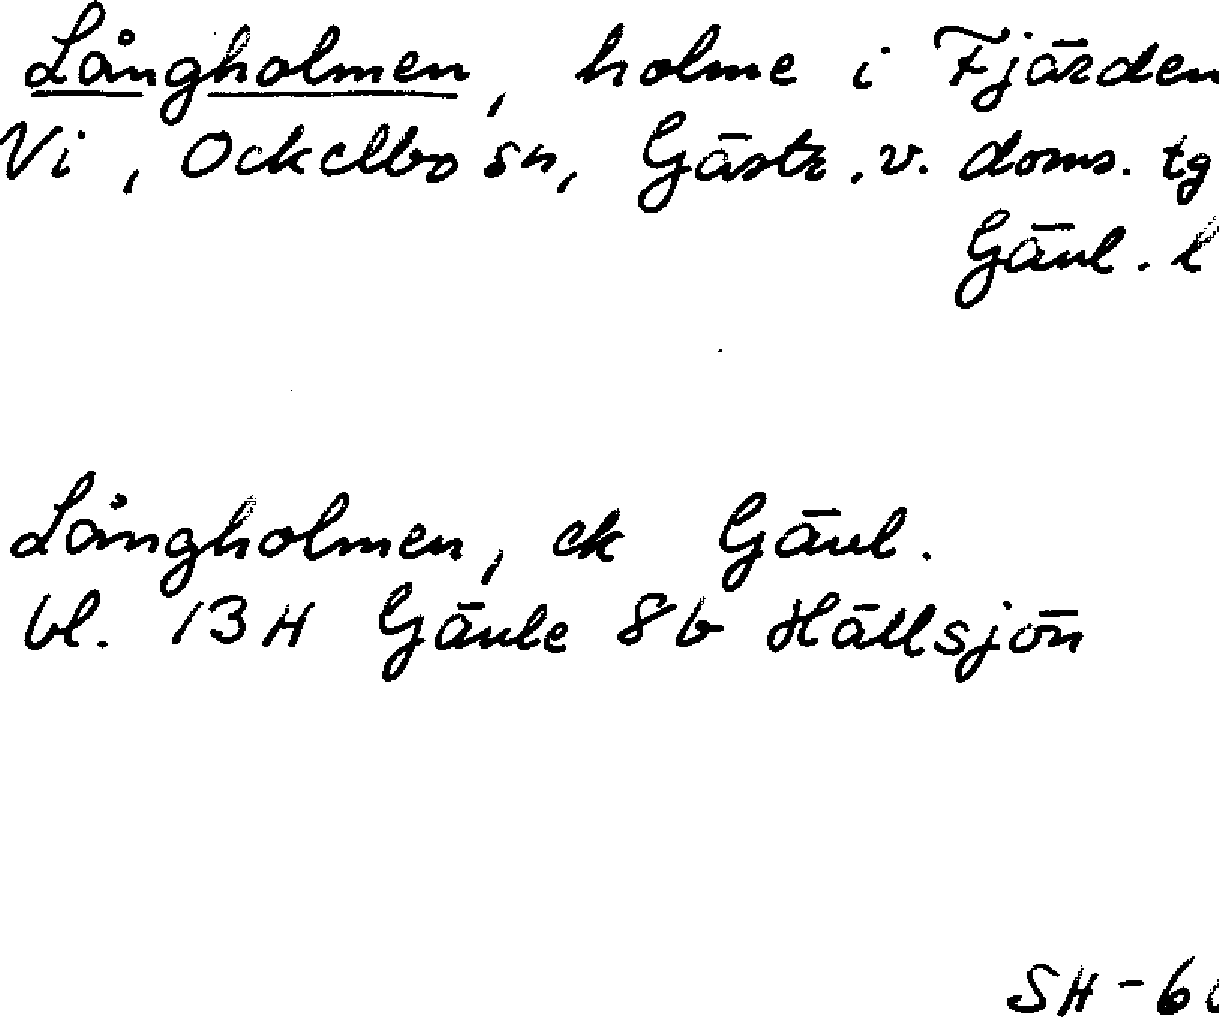 Långholmen, holme i Fjärden
Vi, Ockelbo sn, Gästr. v. doms. tg
Gävl. l
Långholmen, ek Gävl.
bl. 13H Gävle 8b Hällsjön
SH-6